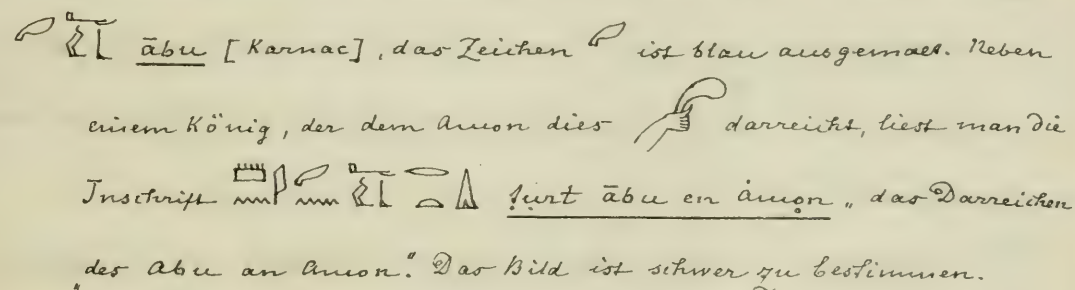 ābu [Karnac], das Zeichen ist blau ausgemalt. Neben
einem König, der dem Amon dies darreicht, liest man die
Inschrift ābu en Åmon „das Darreichen
des Abu an Amon." Das Bild ist schwer zu bestimmen.